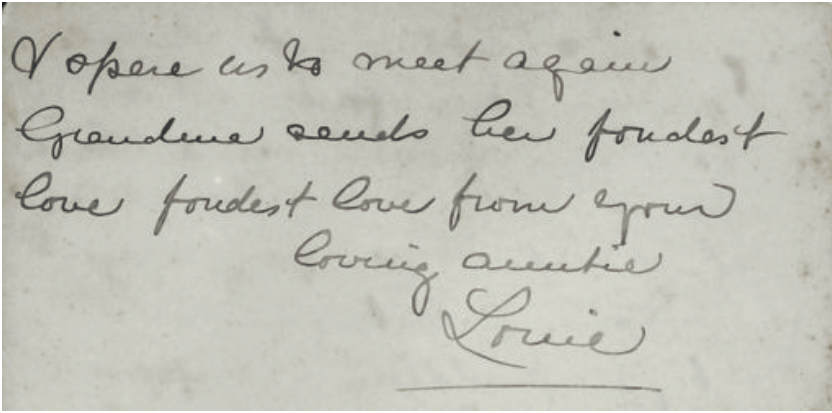 & spare us to meet again
Grandma sends her fondest
love fondest love from your
loving auntie
Louie